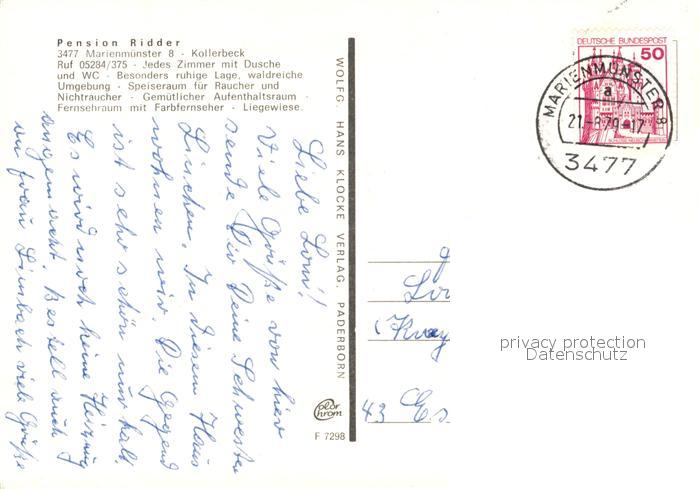 Pension Ridder
3477 Marienmünster 8 - Kollerbeck
Ruf 05284/375 - Jedes Zimmer mit Dusche
und WC - Besonders ruhige Lage, waldreiche
Umgebung - Speiseraum für Raucher und
Nichtraucher - Gemütlicher Aufenthaltsraum -
Fernsehraum mit Farbfernseher - Liegewiese.
Liebe Loni!
Viele Grüße von hier
sende Dir Deine Schwester
Linchen. In diesem Haus
wohnen wir. Die Gegend
ist sehr schön nur kalt.
Es wird noch keine Heizung
angemacht. Bestell auch
an Frau Limbach viele Grüße
WOLFG. HANS KLOCKE VERLAG, PADERBORN
color
chrom
F 7298
DEUTSCHE BUNDESPOST
50
MARIENMÜNSTER 8
a
21.-8.79-17
3477
(Kray
43 Es
privacy protection
Datenschutz